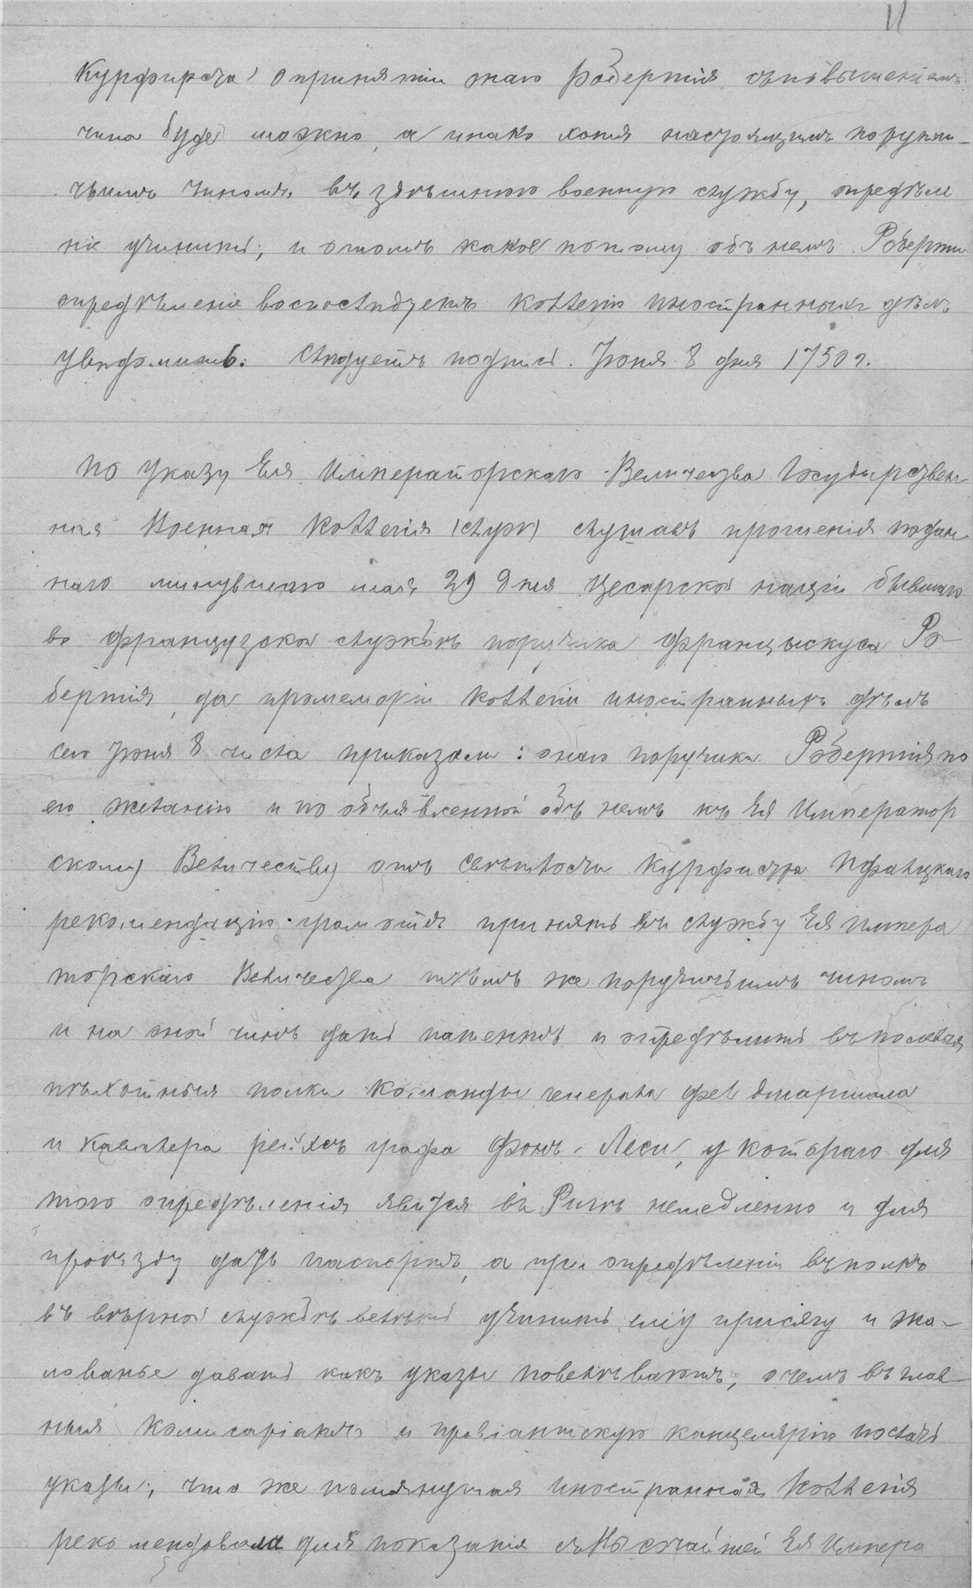 11
Курфирста о принятіи онаго Робертія съ повышеніемъ
чина буде можно, а инако хотя настоящимъ порутчи-
чьимъ чиномъ въ здѣшнюю военную службу, опредѣле
ніе учинить; и о томъ какое потому объ немъ Роберти
опредѣленіе воспослѣдуетъ Коллегію иностранныхъ дѣлъ
увѣдомить. Слѣдуетъ подпись. Іюня 8 дня 1750 г.
По указу Ея Императорскаго Величества Государствен
ная Военная Коллегія (слух) слушавъ прошенія подан
наго минувшаго мая 29 дня Цесарской націи бывшаго
во французской службѣ поручика Францыскуса Ро-
бертія, да промеморіи Коллегіи иностранныхъ дѣлъ
сего Іюня 8 числа приказали: онаго поручика Робертія по
его желанію и по объявленной объ немъ къ Ея Император
скому Величеству отъ Свѣтлости Курфистра Пфалцкаго
рекомендацію грамотѣ принять въ службу Ея Импера
торскаго Величества тѣмъ же порутчьимъ чиномъ
и на оной чинъ дать патентъ и опредѣлить въ полевыя
пѣхотныя полки команды генерала фелдмаршала
и Кавалера рейхсъ графа фонъ-Леси, у котораго для
того опредѣленія явится въ Ригѣ немедленно и для
проѣзду дать паспортъ, а при опредѣленіи въ полкъ
въ вѣрной службѣ велѣть учинить ему присягу и жа-
лованье давать какъ указы повелѣваютъ, о чемъ въ глав-
ныя комисаріатъ и провіантскую канцелярію послать
указы; что же помянутая иностранная Коллегія
рекомендовала для показанія Высочайшей Ея Импера